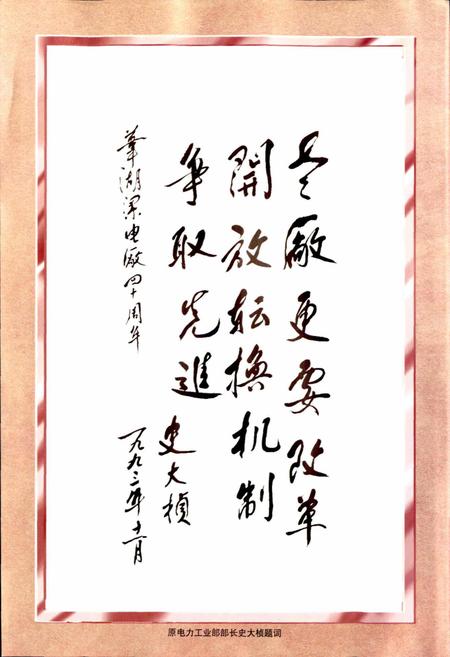 老厰更要改革
開放転換机制
争取先進
史大楨
潤電厰四十周年
一九九二年十一月
原电力工业部部长史大桢题词